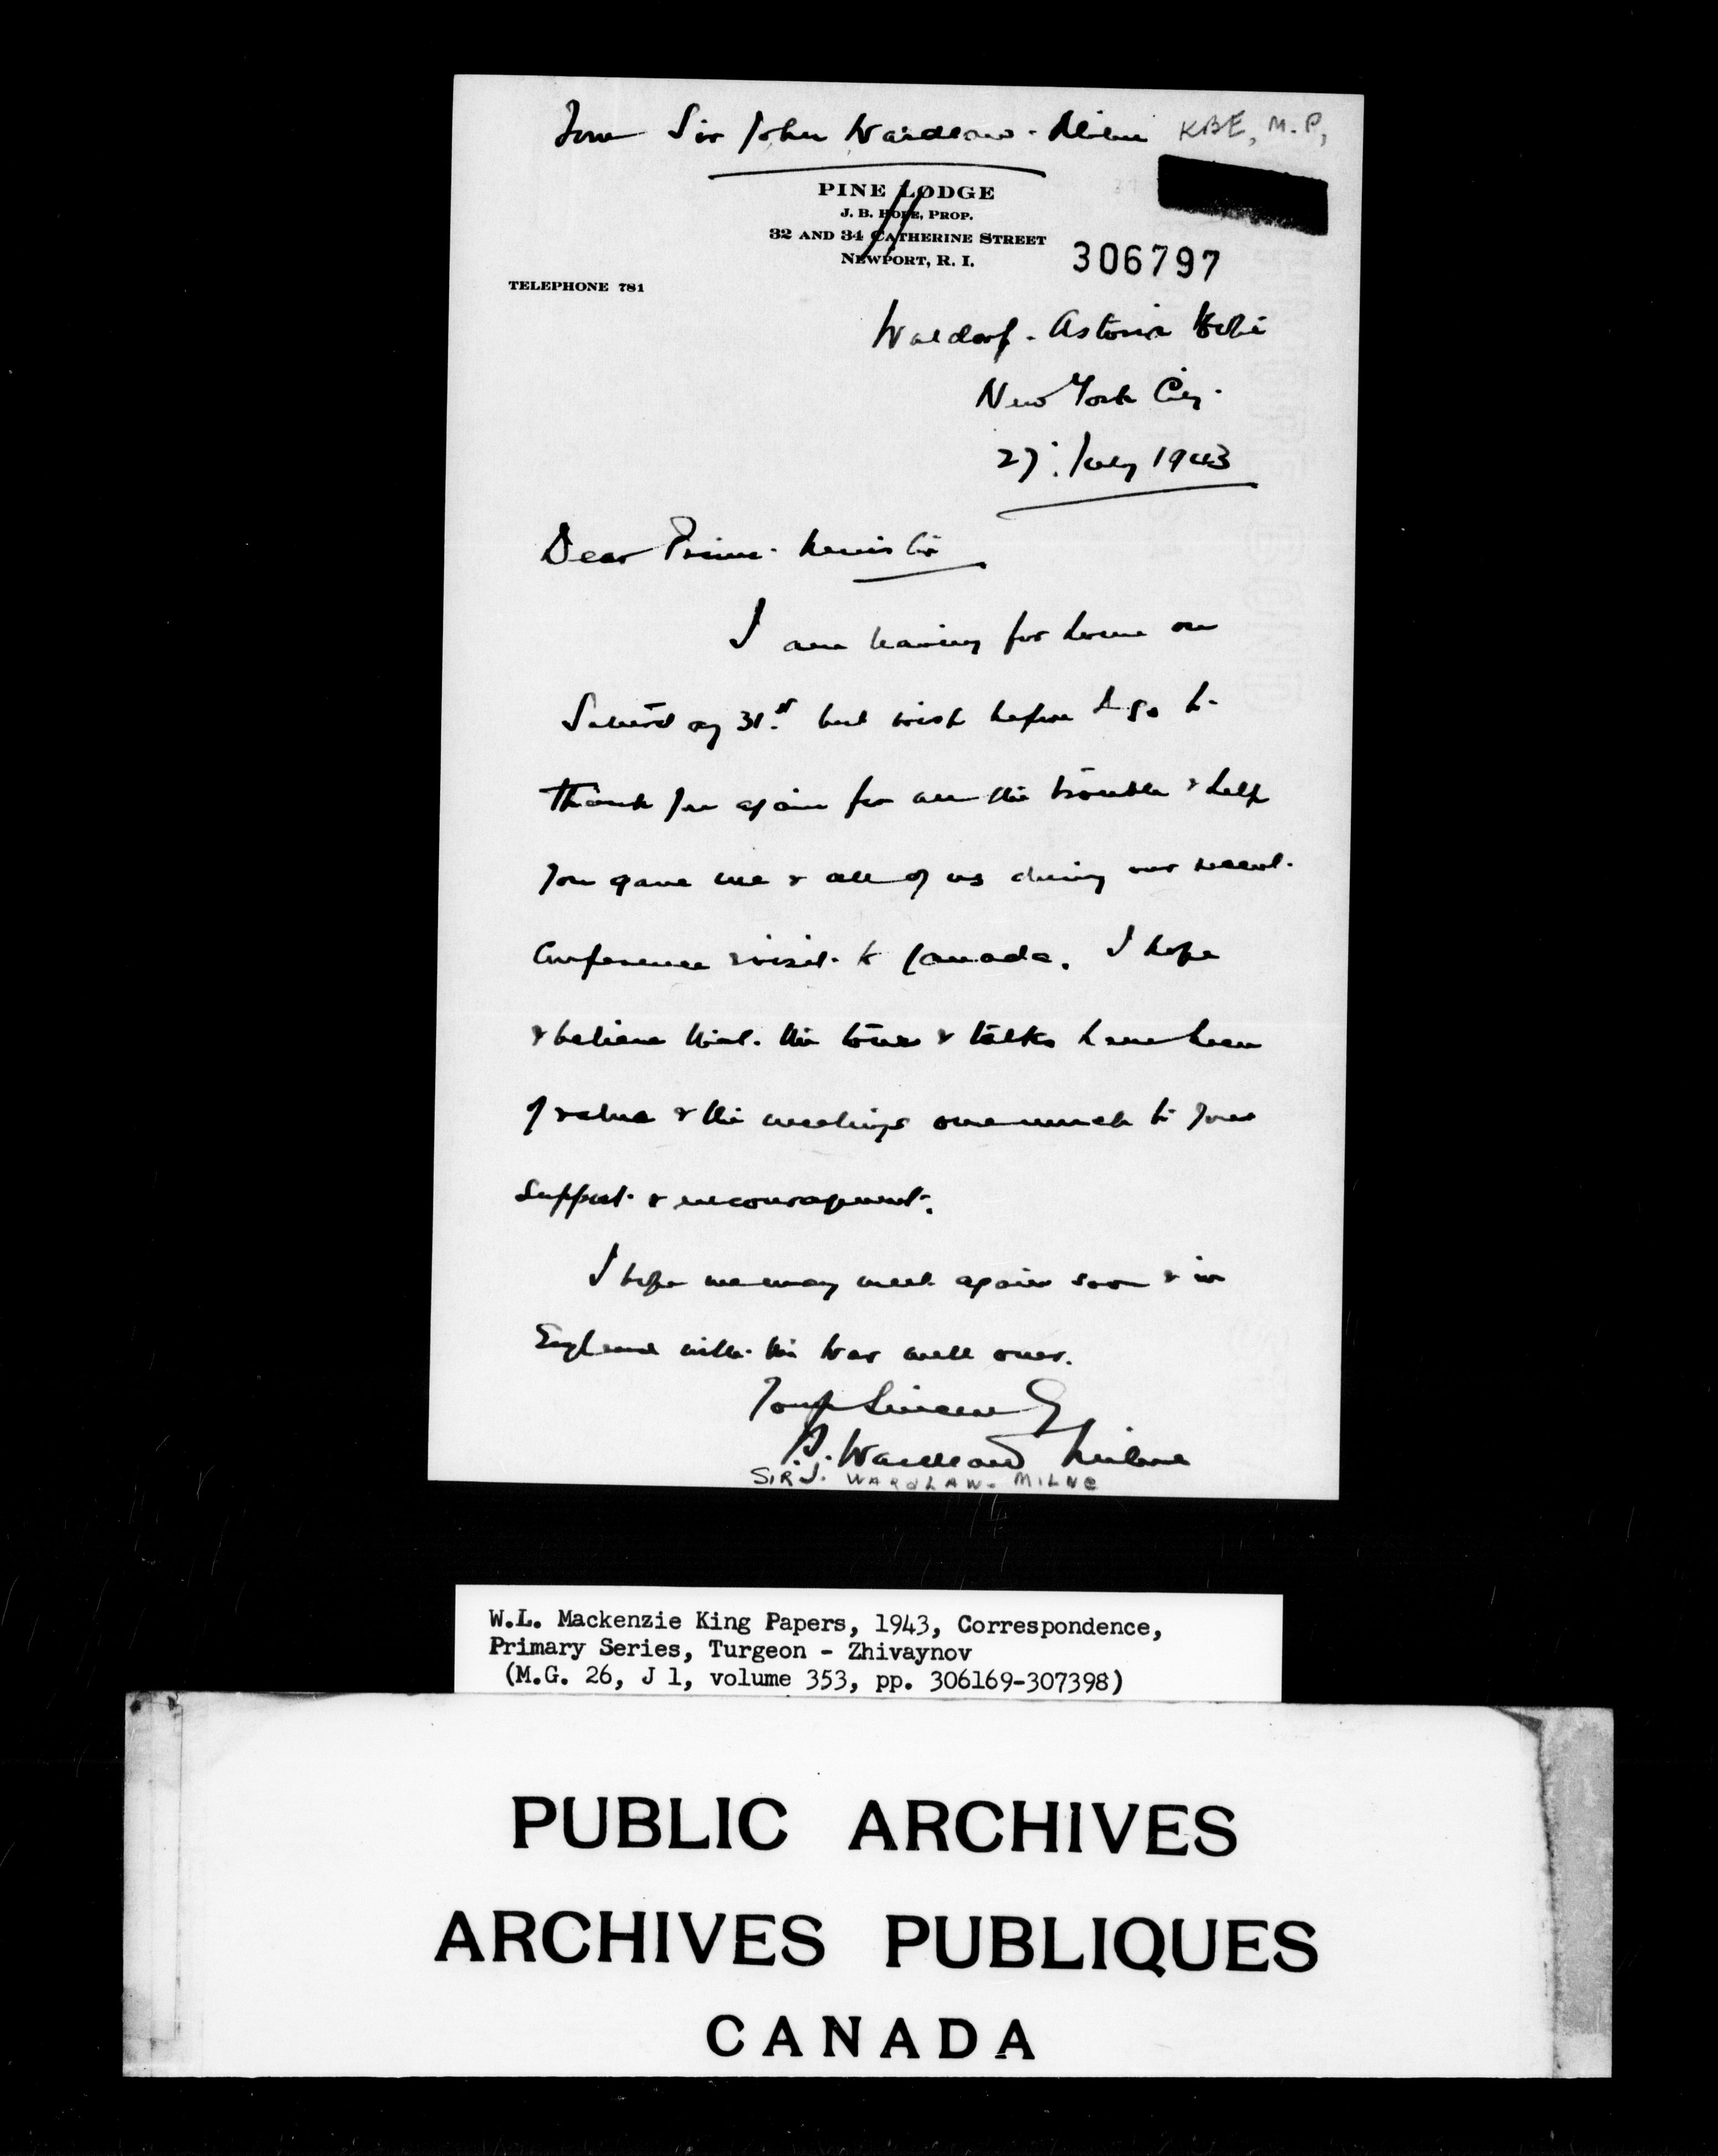 From Sir John Wardlaw-Milne KBE, M.P,
PINE LODGE
J. B. HOPE, PROP.
32 AND 34 CATHERINE STREET
NEWPORT, R. I.
306797
TELEPHONE 781
Waldorf-Astoria Hotel
New York City.
27. July 1943
Dear Prime Minister
I am leaving for home on
Saturday 31st but wish before I go to
thank you again for all the trouble & help
you gave me & all of us during our recent
Conference & visit to Canada. I hope
& believe that the tour & talks have been
of value & the meetings owe much to your
support & encouragement.
I hope we may meet again soon & in
England with the War well over.
Yours Sincerely
J. Wardlaw Milne
SIR J. WARDLAW-MILNE
W.L. Mackenzie King Papers, 1943, Correspondence,
Primary Series, Turgeon - Zhivaynov
(M.G. 26, J 1, volume 353, pp. 306169-307398)
PUBLIC ARCHIVES
ARCHIVES PUBLIQUES
CANADA